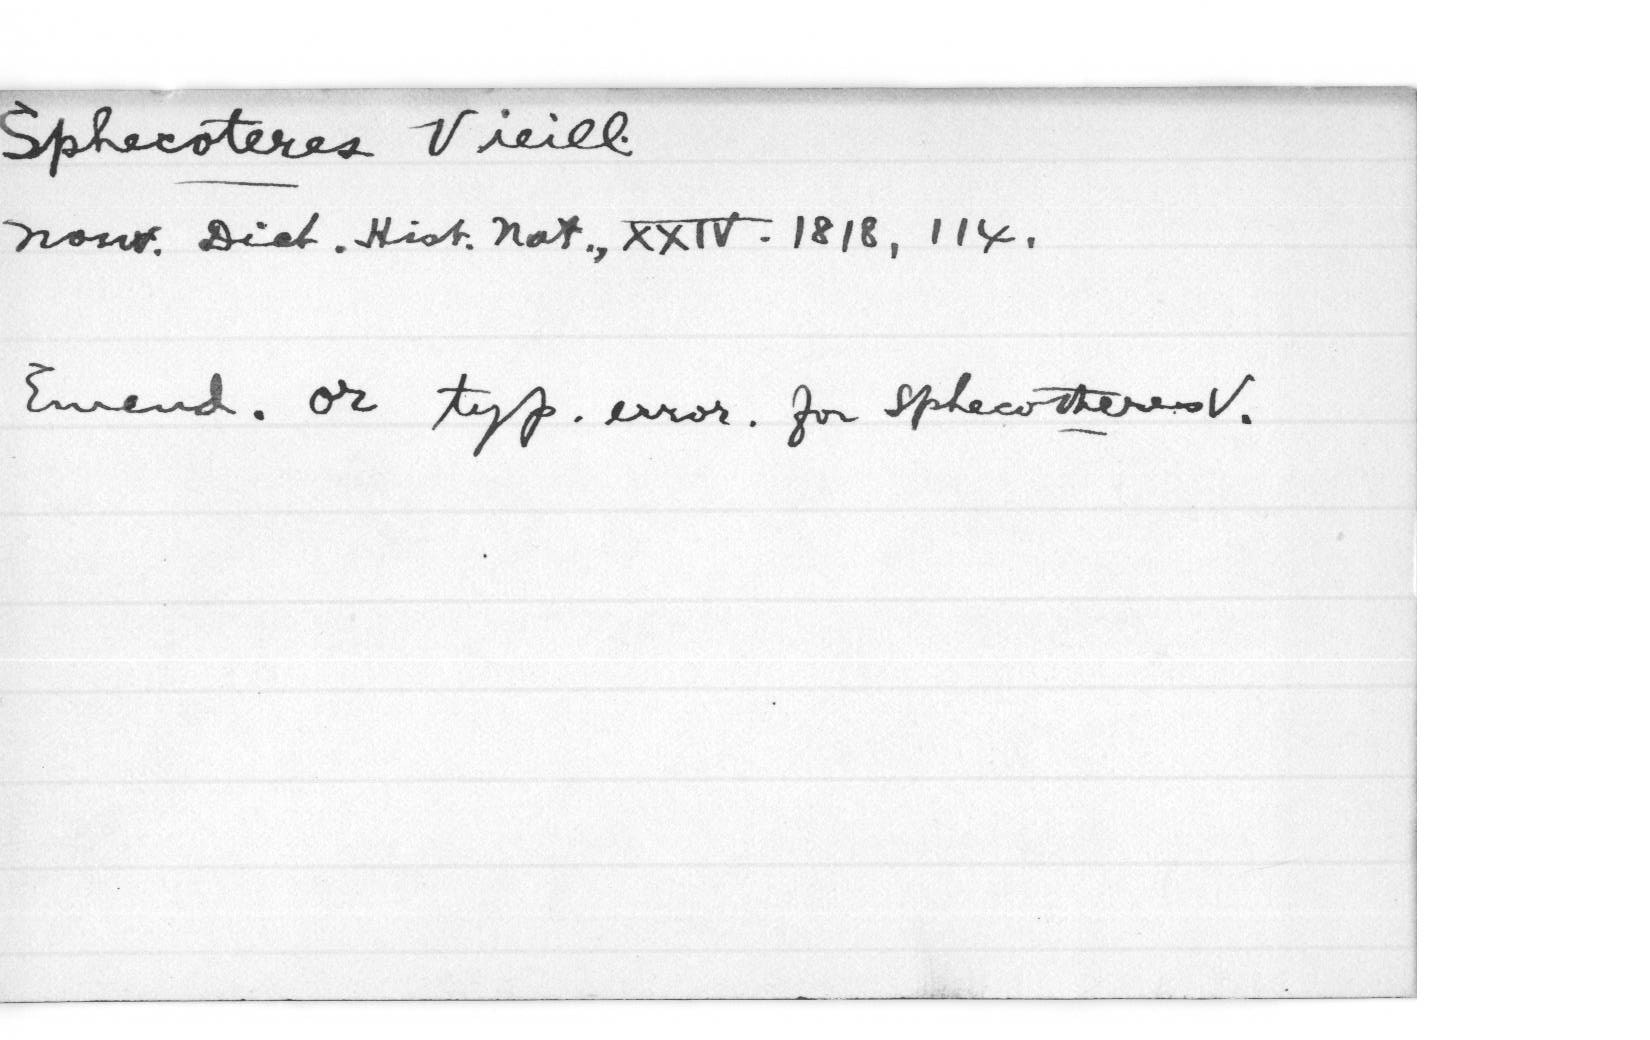 Sphecoteres Vieill.
Nouv. Dict. Hist. Nat., XXIV. 1818, 114.
Emend. or typ. error. for Sphecotheres V.